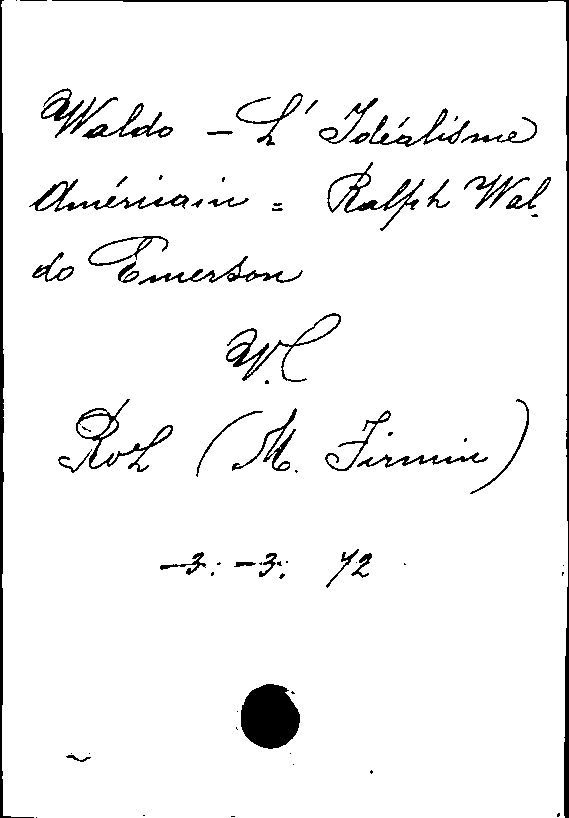 Waldo - L'Idéalisme
Américain = Ralph Wal-
do Emerson
V. C
Roz (M. Firmin)
-3: -3: 72